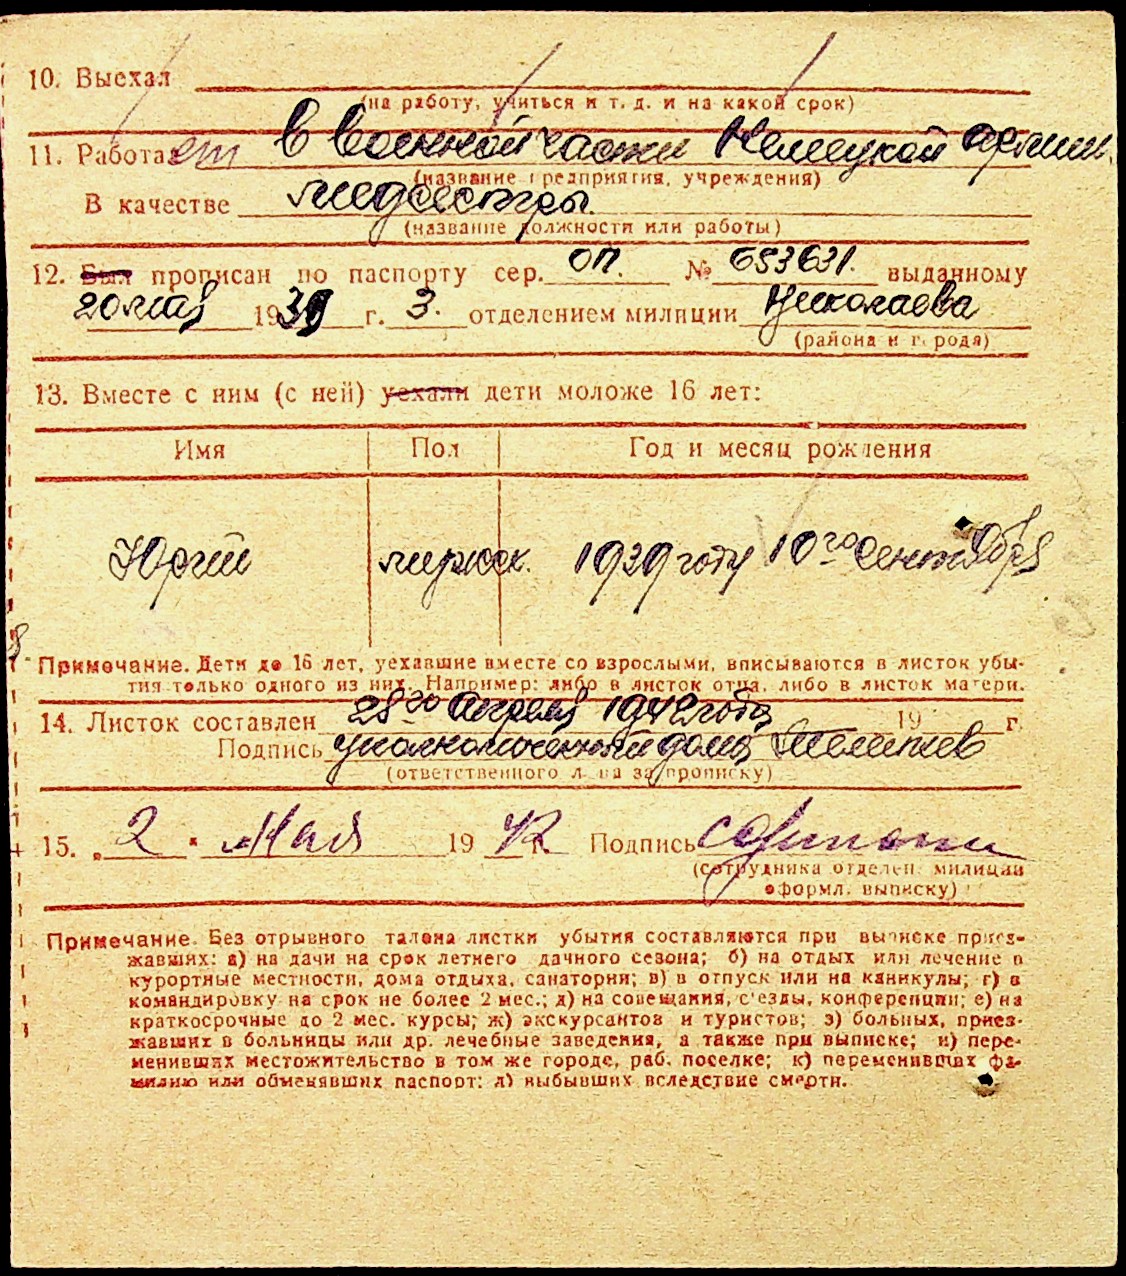 10. Выехал
(на работу, учиться и т. д. и на какой срок)
11. Работает в военной части Немецкой армии.
(название предприятия, учреждения)
В качестве медсестры.
(название должности или работы)
12. Был прописан по паспорту сер. ОП. № 653631. выданному
20 мая 1939 г. 3. отделением милиции Николаева
(района и города)
13. Вместе с ним (с ней) уехали дети моложе 16 лет:
Имя Пол Год и месяц рождения
Юрий мужск. 1939 году 10го сентября
Примечание. Дети до 16 лет, уехавшие вместе со взрослыми, вписываются в листок убы-
тия только одного из них. Например: либо в листок отца, либо в листок матери.
14. Листок составлен 28го Апреля 1942 года 19 г.
Подпись уполномоченный дома
(ответственного л на за прописку)
15. „ 2 " Мая 19 42 г. Подпись
(сотрудника отделен. милиции
оформл. выписку)
Примечание. Без отрывного талона листки убытия составляются при выписке приез-
жавших: а) на дачи на срок летнего дачного сезона; б) на отдых или лечение в
курортные местности, дома отдыха, санатории; в) в отпуск или на каникулы; г) в
командировку на срок не более 2 мес.; д) на совещания, с'езды, конференции; е) на
краткосрочные до 2 мес. курсы; ж) экскурсантов и туристов; з) больных, приез-
жавших в больницы или др. лечебные заведения, а также при выписке; и) пере-
менивших местожительство в том же городе, раб. поселке; к) переменивших фа-
милию или обменявших паспорт; л) выбывших вследствие смерти.